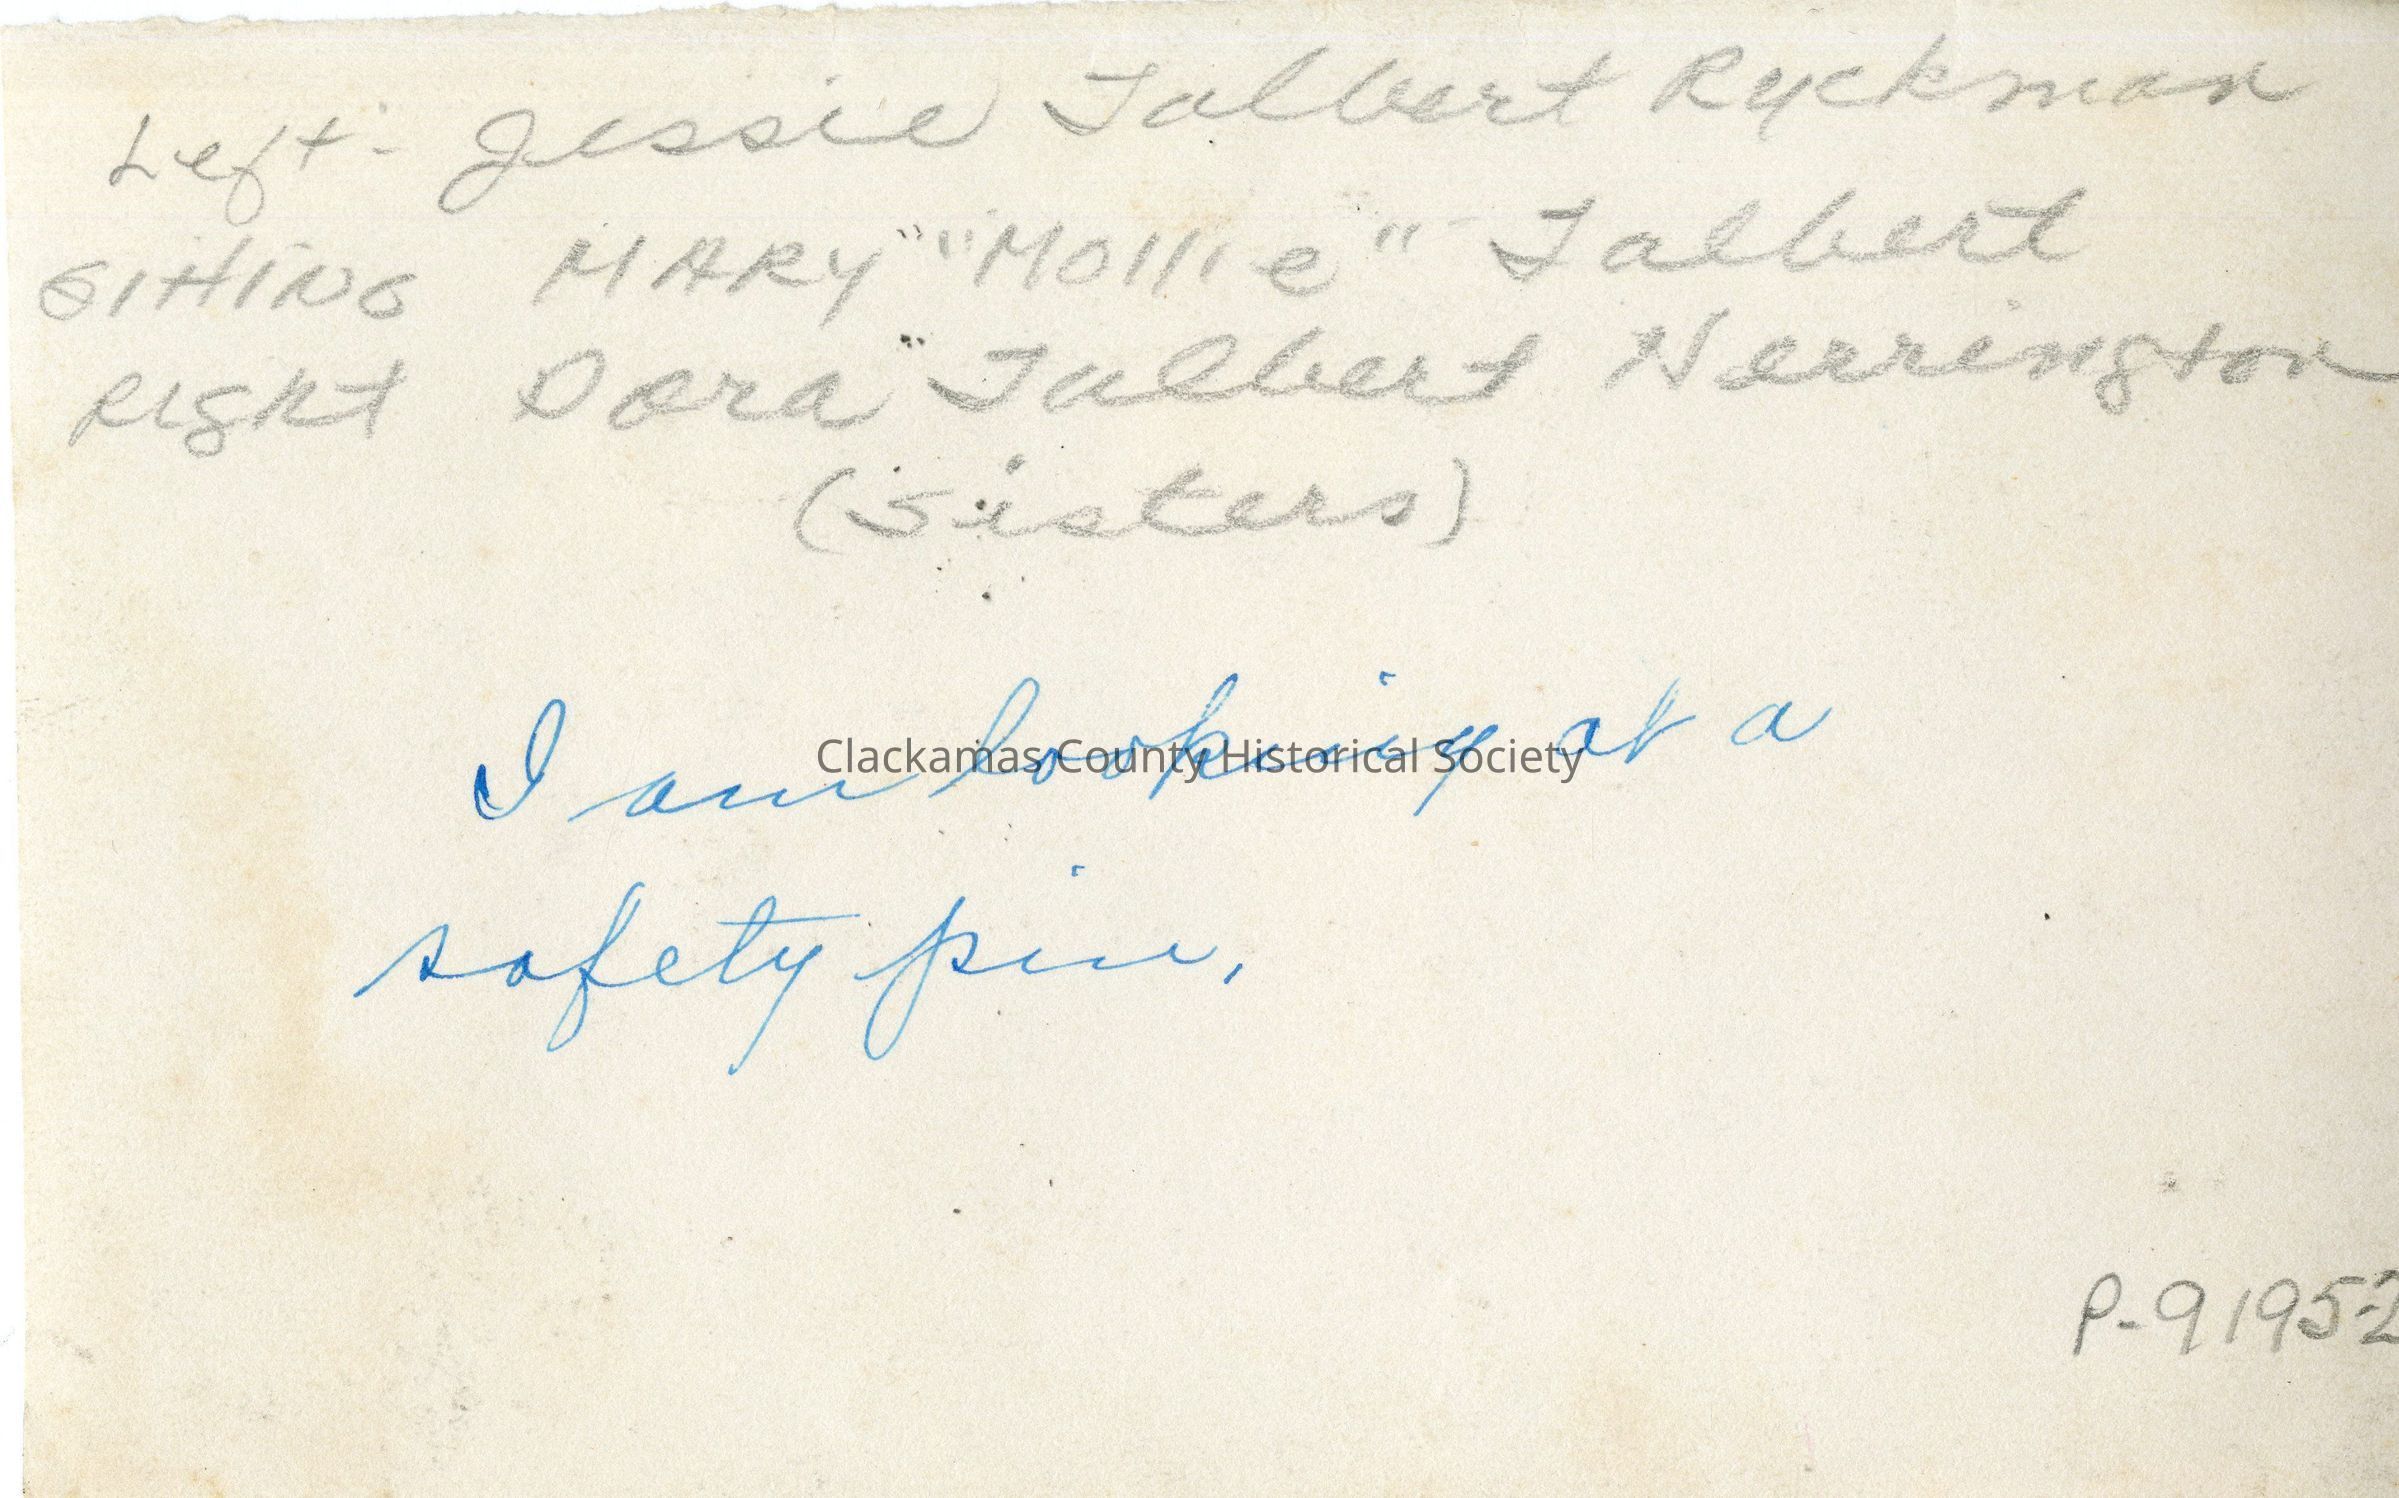 Left - Jessie Talbert Ryckman
SITTING MARY "Mollie" Talbert
Right Dora Talbert Herrington
(Sisters)
I am looking at a
Clackamas County Historical Society
safety pin.
P-91952